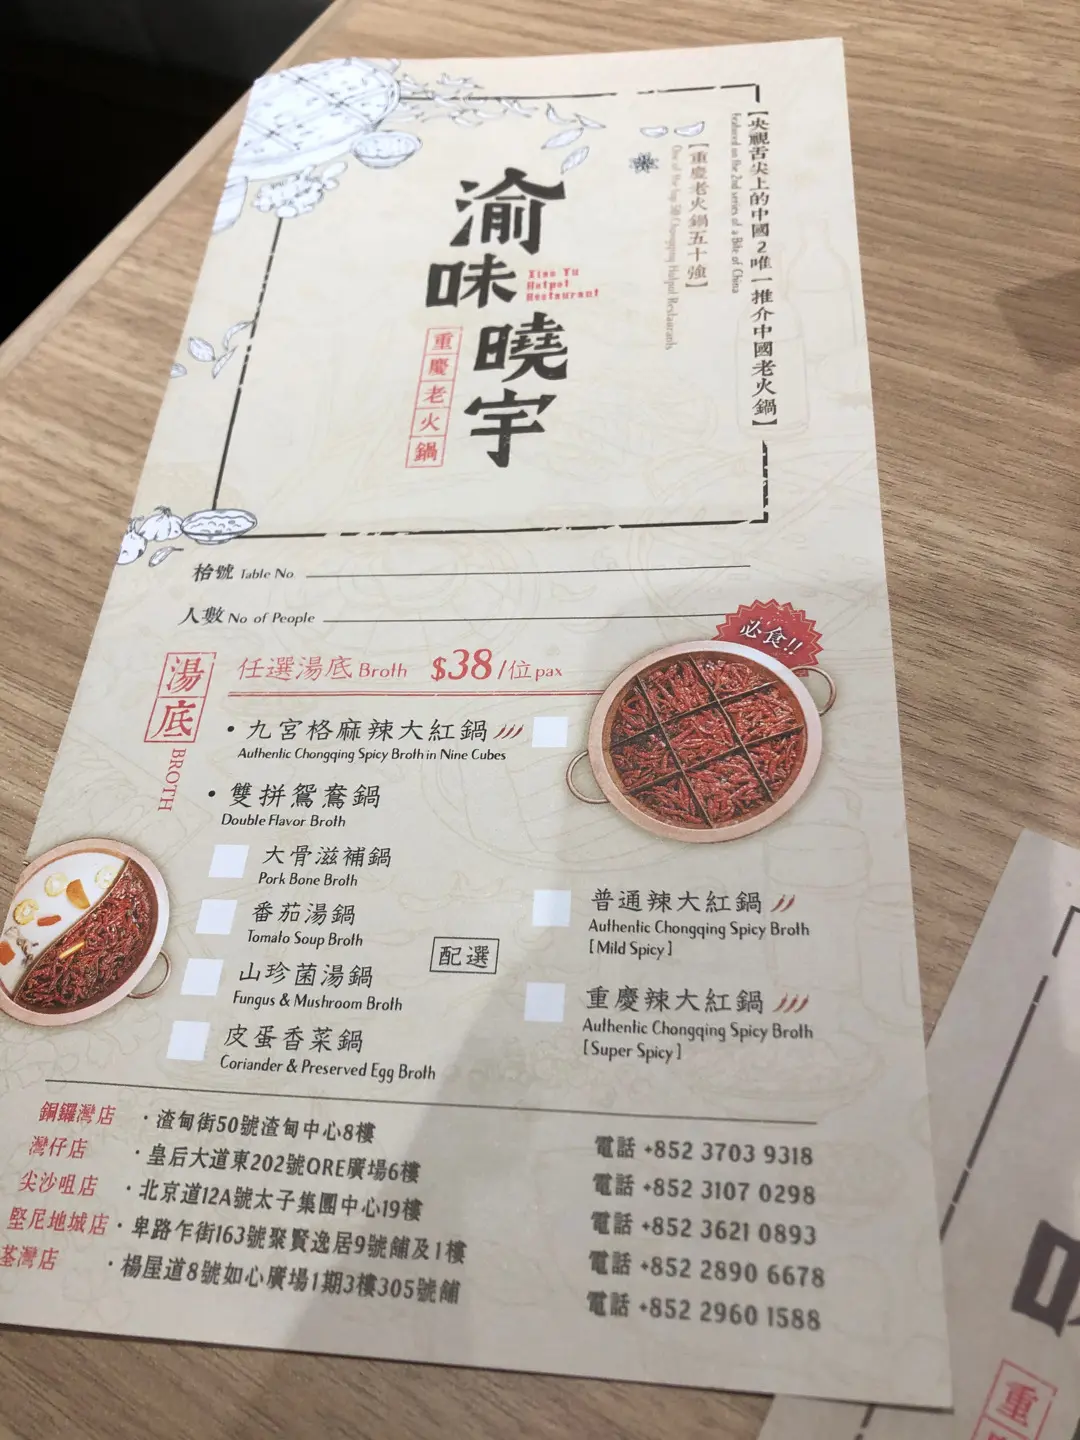 【央視舌尖上的中國2唯一推介中國老火鍋】
Featured on the 2nd series of a Bite of China
【重慶老火鍋五十強】
One of the top 50 Chongqing Hotpot Restaurants
渝味曉宇
Xiao Yu
Hotpot
Restaurant
重慶老火鍋
枱號 Table No
人數 No of People
必食!!
湯底
BROTH
任選湯底 Broth $38/位pax
• 九宮格麻辣大紅鍋
Authentic Chongqing Spicy Broth in Nine Cubes
• 雙拼鴛鴦鍋
Double Flavor Broth
大骨滋補鍋
Pork Bone Broth
番茄湯鍋
Tomato Soup Broth
山珍菌湯鍋
Fungus & Mushroom Broth
皮蛋香菜鍋
Coriander & Preserved Egg Broth
配選
普通辣大紅鍋
Authentic Chongqing Spicy Broth
[Mild Spicy]
重慶辣大紅鍋
Authentic Chongqing Spicy Broth
[Super Spicy]
銅鑼灣店 ·渣甸街50號渣甸中心8樓 電話 +852 3703 9318
灣仔店 ·皇后大道東202號QRE廣場6樓 電話 +852 3107 0298
尖沙咀店 ·北京道12A號太子集團中心19樓 電話 +852 3621 0893
堅尼地城店 ·卑路乍街163號聚賢逸居9號舖及1樓 電話 +852 2890 6678
荃灣店 ·楊屋道8號如心廣場1期3樓305號舖 電話 +852 2960 1588
重